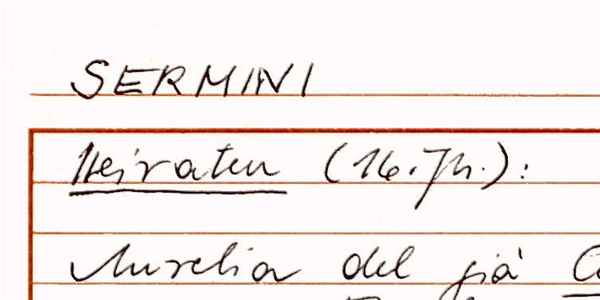 SERMINI
Heiraten (16. Jh.):
Aurelia del già